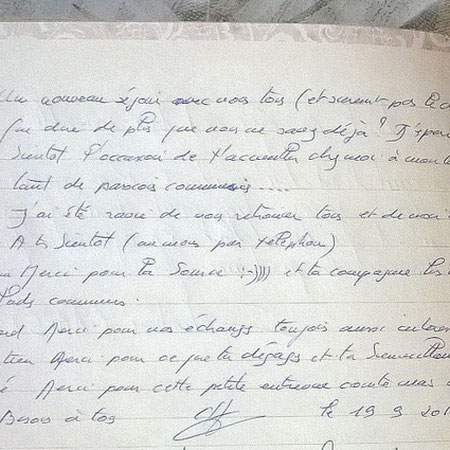 Un nouveau séjour avec vous tous (et surement pas le d
Que dire de plus que vous ne savez déjà? J'espère
bientot l'occasion de t'accueillir chez moi à mon to
tant de parcours communs ....
J'ai été ravie de vous retrouver tous et de
A très bientot (au moins par téléphone)
Merci pour la Source :-)))) et ta compagnie les
communs.
Merci pour vos échanges toujours aussi
Merci pour ce que tu dégages et ta
Merci pour cette petite entrevue
Bisous à tous le 19 9 201